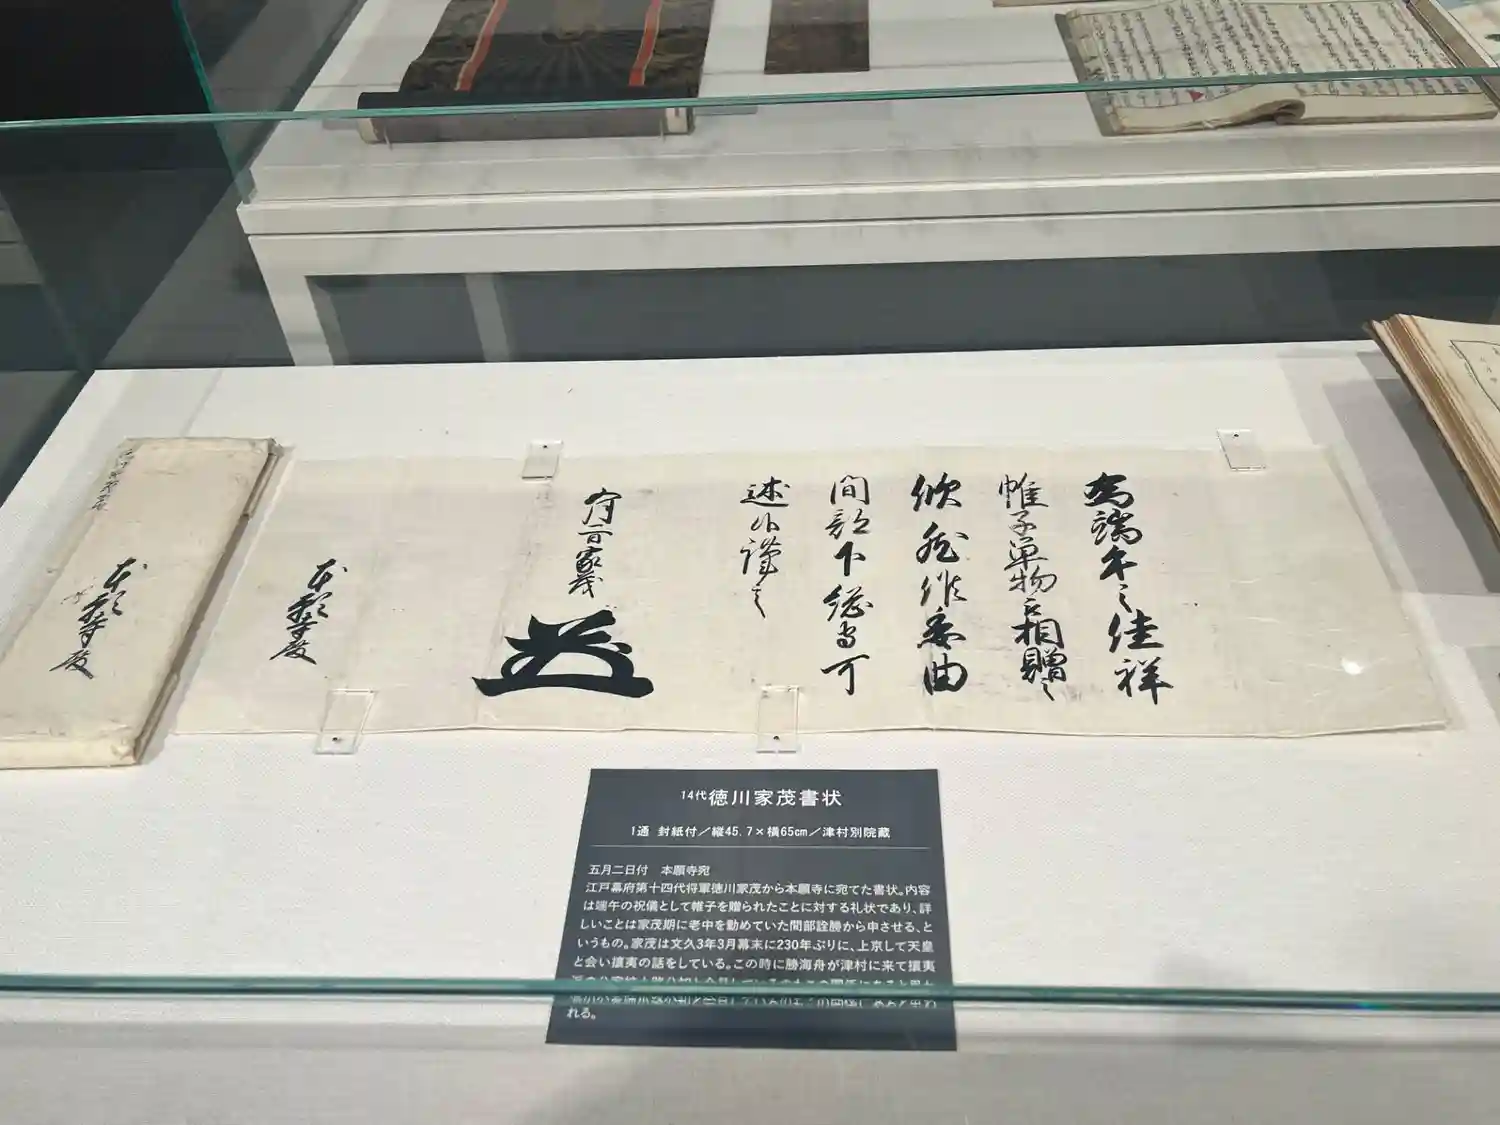 為端午之佳祥
帷子単物被相贈之
欣然候委曲
間部下総守可
述候謹言
五月二日家茂
本願寺殿
本願寺殿
14代徳川家茂書状
1通 封紙付／縦45.7×横65cm／津村別院蔵
五月二日付 本願寺宛
江戸幕府第十四代将軍徳川家茂から本願寺に宛てた書状。内容
は端午の祝儀として帷子を贈られたことに対する礼状であり、詳
しいことは家茂期に老中を勤めていた間部詮勝から申させる、と
いうもの。家茂は文久3年3月幕末に230年ぶりに、上京して天皇
と会い攘夷の話をしている。この時に勝海舟が津村に来て攘夷
れる。